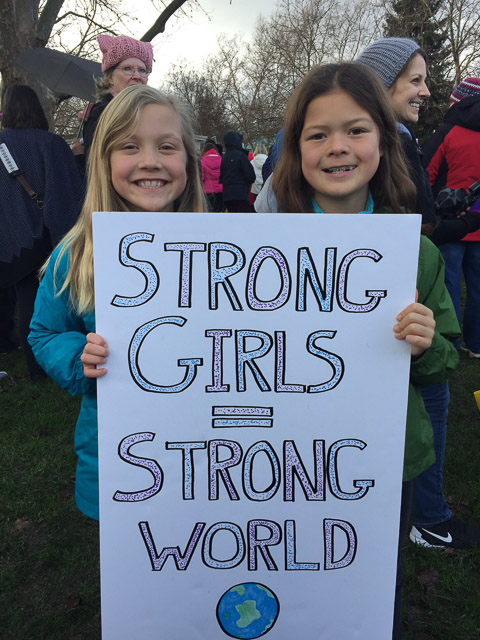 STRONG
GIRLS
=
STRONG
WORLD